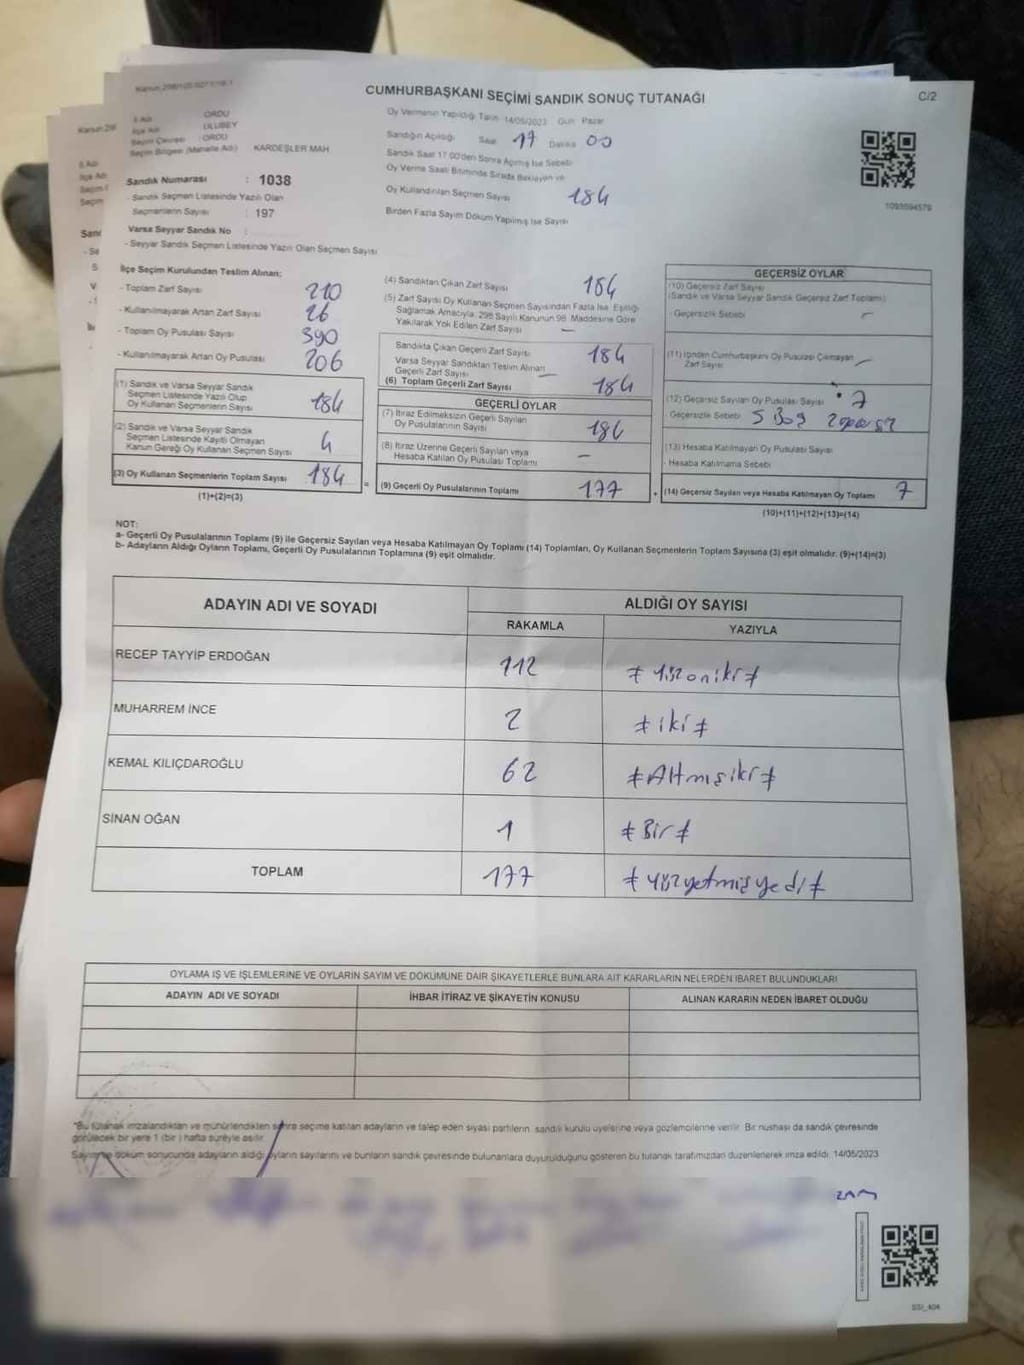 CUMHURBAŞKANI SEÇİMİ SANDIK SONUÇ TUTANAĞI
C/2
İl Adı ORDU
İlçe Adı ULUBEY
Seçim Çevresi : ORDU
Seçim Bölgesi (Mahalle Adı) KARDEŞLER MAH.
Sandık Numarası : 1038
- Sandık Seçmen Listesinde Yazılı Olan
Seçmenlerin Sayısı : 197
Varsa Seyyar Sandık No :
- Seyyar Sandık Seçmen Listesinde Yazılı Olan Seçmen Sayısı
Oy Vermenin Yapıldığı Tarih 14/05/2023 Gün Pazar
Sandığın Açıldığı Saat 17 Dakika 00
Sandık Saat 17.00'den Sonra Açılmış İse Sebebi
Oy Verme Saati Bitiminde Sırada Bekleyen ve
Oy Kullandırılan Seçmen Sayısı 184
Birden Fazla Sayım Döküm Yapılmış İse Sayısı
1093594579
İlçe Seçim Kurulundan Teslim Alınan;
- Toplam Zarf Sayısı 210
- Kullanılmayarak Artan Zarf Sayısı 26
- Toplam Oy Pusulası Sayısı 390
- Kullanılmayarak Artan Oy Pusulası 206
(1) Sandık ve Varsa Seyyar Sandık
Seçmen Listesinde Yazılı Olup
Oy Kullanan Seçmenlerin Sayısı 184
(2) Sandık ve Varsa Seyyar Sandık
Seçmen Listesinde Kayıtlı Olmayan
Kanun Gereği Oy Kullanan Seçmen Sayısı
(3) Oy Kullanan Seçmenlerin Toplam Sayısı 184
(1)+(2)=(3)
(4) Sandıktan Çıkan Zarf Sayısı 184
(5) Zarf Sayısı Oy Kullanan Seçmen Sayısından Fazla İse, Eşitliği
Sağlamak Amacıyla, 298 Sayılı Kanunun 98. Maddesine Göre
Yakılarak Yok Edilen Zarf Sayısı –
Sandıkta Çıkan Geçerli Zarf Sayısı 184
Varsa Seyyar Sandıktan Teslim Alınan
Geçerli Zarf Sayısı –
(6) Toplam Geçerli Zarf Sayısı 184
GEÇERLİ OYLAR
(7) İtiraz Edilmeksizin Geçerli Sayılan
Oy Pusulalarının Sayısı
(8) İtiraz Üzerine Geçerli Sayılan veya
Hesaba Katılan Oy Pusulası Toplamı –
= (9) Geçerli Oy Pusulalarının Toplamı 177
GEÇERSİZ OYLAR
(10) Geçersiz Zarf Sayısı
(Sandık ve Varsa Seyyar Sandık Geçersiz Zarf Toplamı)
- Geçersizlik Sebebi –
(11) İçinden Cumhurbaşkanı Oy Pusulası Çıkmayan
Zarf Sayısı –
(12) Geçersiz Sayılan Oy Pusulası Sayısı 7
- Geçersizlik Sebebi 5 Boş
(13) Hesaba Katılmayan Oy Pusulası Sayısı
- Hesaba Katılmama Sebebi
+ (14) Geçersiz Sayılan veya Hesaba Katılmayan Oy Toplamı 7
(10)+(11)+(12)+(13)=(14)
NOT:
a- Geçerli Oy Pusulalarının Toplamı (9) ile Geçersiz Sayılan veya Hesaba Katılmayan Oy Toplamı (14) Toplamları, Oy Kullanan Seçmenlerin Toplam Sayısına (3) eşit olmalıdır. (9)+(14)=(3)
b- Adayların Aldığı Oyların Toplamı, Geçerli Oy Pusulalarının Toplamına (9) eşit olmalıdır.
ADAYIN ADI VE SOYADI ALDIĞI OY SAYISI
RAKAMLA YAZIYLA
RECEP TAYYİP ERDOĞAN 112 # yüzoniki #
MUHARREM İNCE 2 # iki #
KEMAL KILIÇDAROĞLU 62 # Altmışiki #
SİNAN OĞAN 1 # Bir #
TOPLAM 177 # yüzyetmişyedi #
OYLAMA İŞ VE İŞLEMLERİNE VE OYLARIN SAYIM VE DÖKÜMÜNE DAİR ŞİKAYETLERLE BUNLARA AİT KARARLARIN NELERDEN İBARET BULUNDUKLARI
ADAYIN ADI VE SOYADI İHBAR İTİRAZ VE ŞİKAYETİN KONUSU ALINAN KARARIN NEDEN İBARET OLDUĞU
*Bu tutanak imzalandıktan ve mühürlendikten sonra seçime katılan adayların ve talep eden siyasi partilerin, sandık kurulu üyelerine veya gözlemcilerine verilir. Bir nüshası da sandık çevresinde
görülecek bir yere 1 (bir) hafta süreyle asılır.
Sayım ve döküm sonucunda adayların aldığı oyların sayılarını ve bunların sandık çevresinde bulunanlara duyurulduğunu gösteren bu tutanak tarafımızdan düzenlenerek imza edildi. 14/05/2023
SSI_404